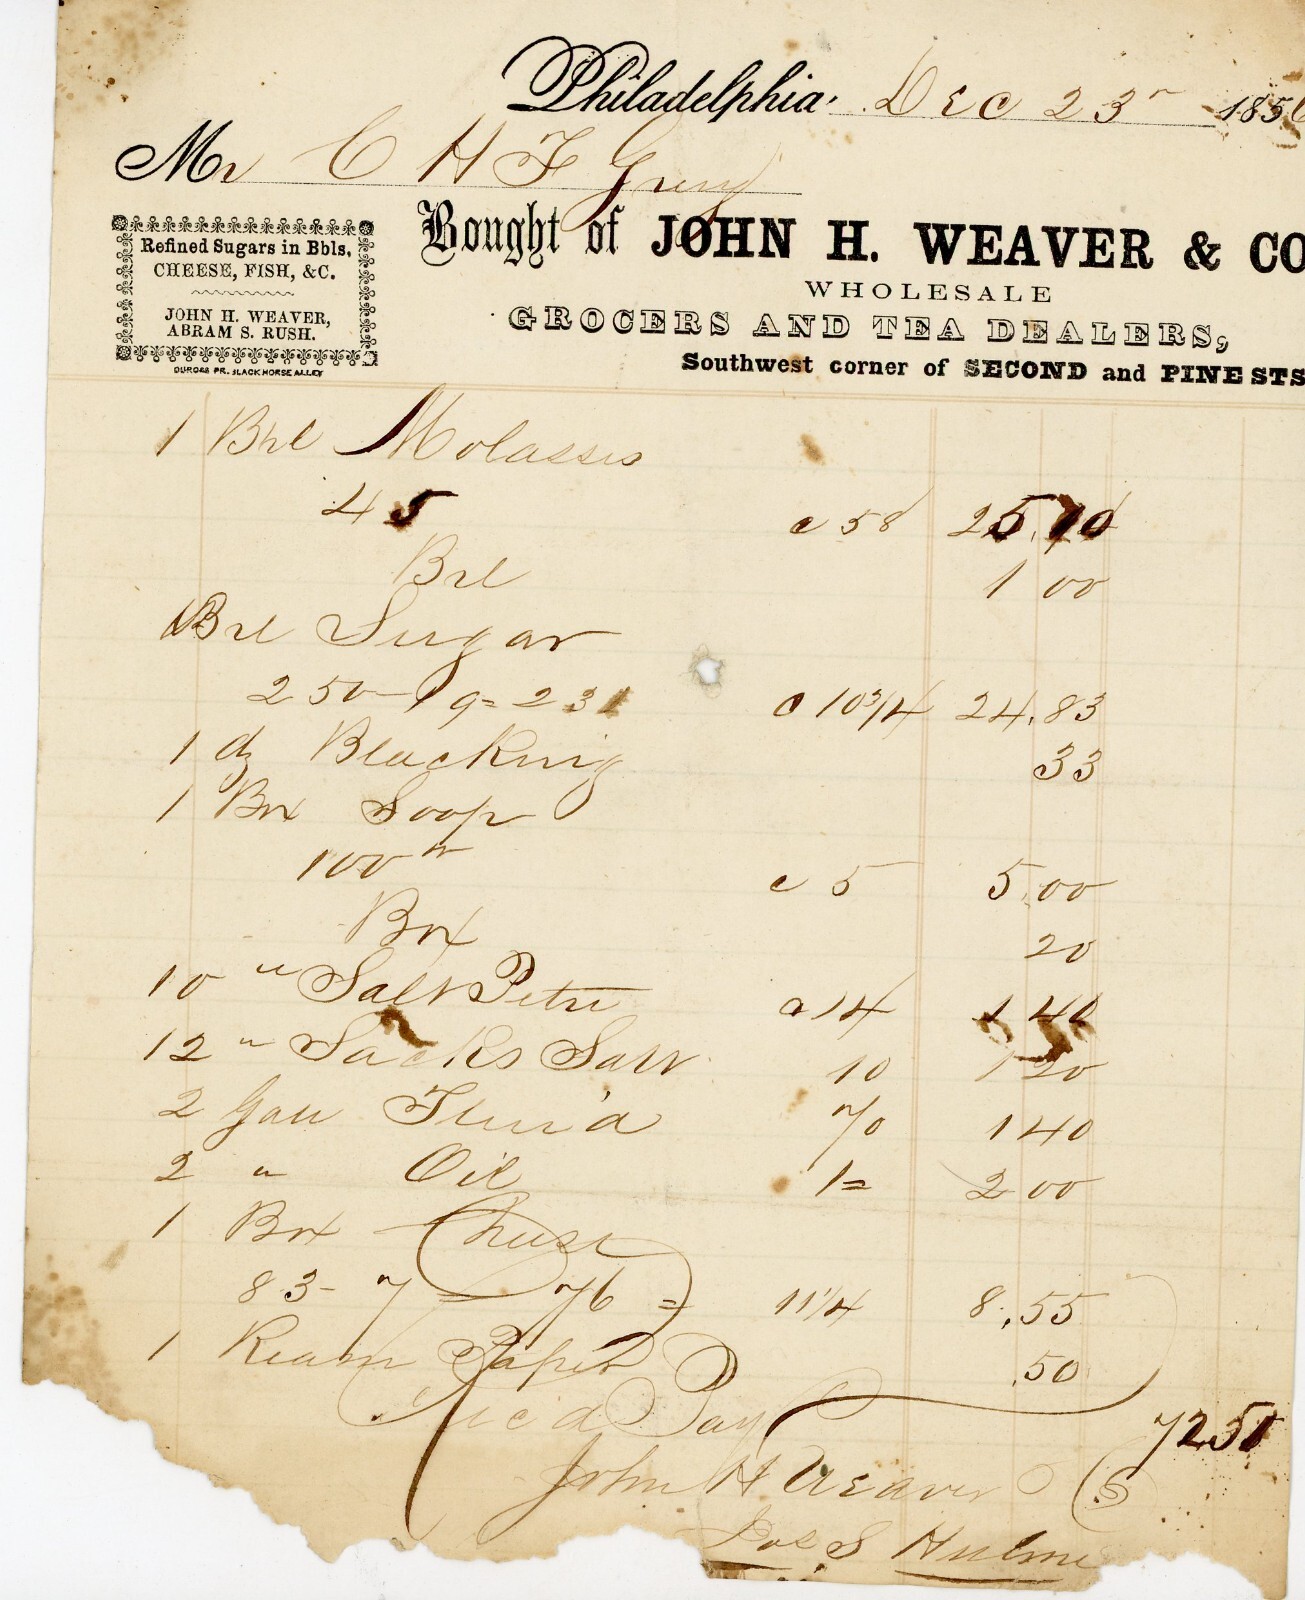 Philadelphia, Dec 23 185
Mr C H F
Refined Sugars in Bbls.
CHEESE, FISH, &C.
JOHN H. WEAVER,
ABRAM S. RUSH.
DUROSS PR. BLACK HORSE ALLEY
Bought of JOHN H. WEAVER & CO
WHOLESALE
GROCERS AND TEA DEALERS,
Southwest corner of SECOND and PINE STS
1 Brl Molasses
45 c 58 25.
Brl 1 00
1 Brl Sugar
250 19 = 231 c 10 3/4 24.83
1 dz Blacking 33
1 Box Soap
100 c 5 5.00
Box 20
10 " Salt Petre a 14 1 40
12 " Sacks Salt 10 1 20
2 Gall Fluid 70 1 40
2 " Oil 1= 2 00
1 Box Cheese
83 - 7 = 76 = 11 1/4 8.55
1 Ream Paper .50
Rec'd Pay 72 51
John H Weaver & Co
Jos S Hulme